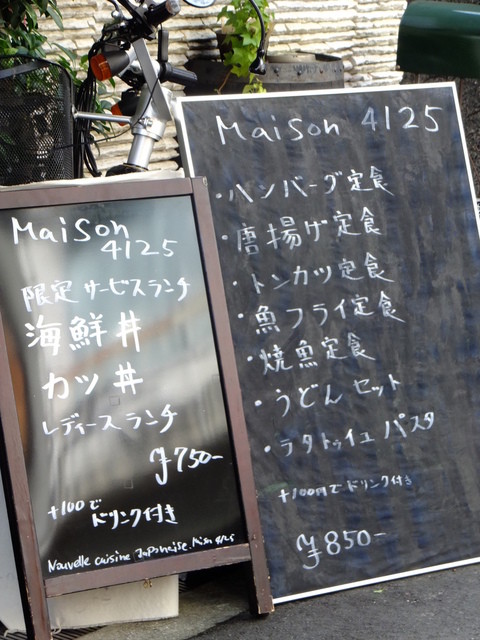 Maison
4125
限定 サービスランチ
海鮮丼
カツ丼
レディースランチ
¥750-
+100で
ドリンク付き
Nouvelle cuisine Japoneise.
Maison 4125
・ハンバーグ定食
・唐揚げ定食
・トンカツ定食
・魚フライ定食
・焼魚定食
・うどんセット
・ラタトゥイユ パスタ
+100円でドリンク付き
¥850-